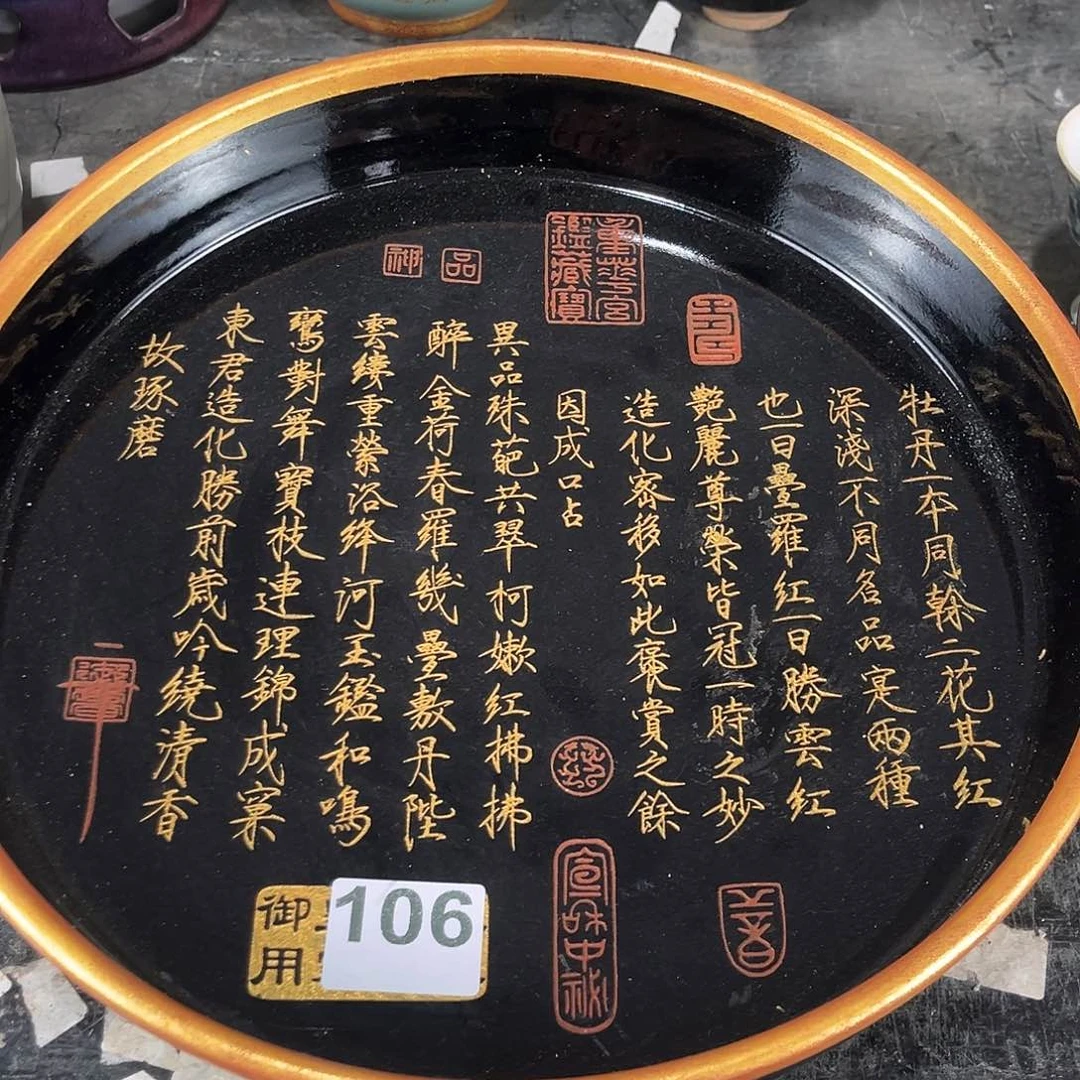 牡丹一本同榦二花其紅
深淺不同名品寔兩種
也一曰疊羅紅一曰勝雲紅
艷麗尊榮皆冠一時之妙
造化密移如此褒賞之餘
因成口占
異品殊葩共翠柯嫩紅拂拂
醉金荷春羅幾疊敷丹陛
雲縷重縈浴絳河玉鑑和鳴
鸞對舞寶枝連理錦成窠
東君造化勝前歲吟繞清香
故琢磨
重華宮
鑑藏寶
神品
宣和中秘
御用
106